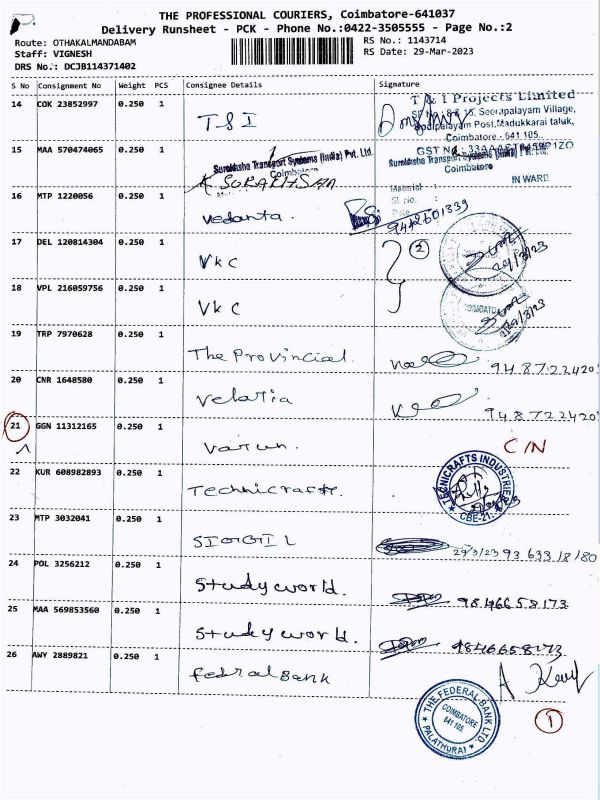 THE PROFESSIONAL COURIERS, Coimbatore-641037
Delivery Runsheet - PCK - Phone No.:0422-3505555 - Page No.:2
Route: OTHAKALMANDABAM
RS No.: 1143714
Staff: VIGNESH
RS Date: 29-Mar-2023
DRS No.: DCJB114371402
S No Consignment No Weight PCS Consignee Details Signature
14 COK 23852997 0.250 1 TSI
T & I Projects Limited
Seerapalayam Village,
Post, Madukkarai taluk,
Coimbatore - 641 105.
15 MAA 570474065 0.250 1 SURAKHSHA
Suraksha Transport Systems (India) Pvt. Ltd.
Coimbatore
GST No
Suraksha Transport Systems (India) Pvt. Ltd.
Coimbatore
IN WARD
Material :
Sl. no. :
Date
16 MTP 1220056 0.250 1 Vedanta.
9442601339
17 DEL 120814304 0.250 1 VKC
2
29/3/23
18 VPL 216059756 0.250 1 VKC
29/3/23
19 TRP 7970628 0.250 1 The Provincial.
9487222420
20 CNR 1648580 0.250 1 Velatia
9487222420
21 GGN 11312165 0.250 1 Varun. C/N
22 KUR 608982893 0.250 1 Technicraft.
TECNICRAFTS INDUSTRIES
CBE-21
23 MTP 3032041 0.250 1 SIGGIL
29/3/23 93 633 18180
24 POL 3256212 0.250 1 Studyworld.
9846658173
25 MAA 569853560 0.250 1 Studyworld.
9846658173
26 AWY 2889821 0.250 1 Fedral Bank
THE FEDERAL BANK LTD
COIMBATORE
641 105
PALATHURAI
1